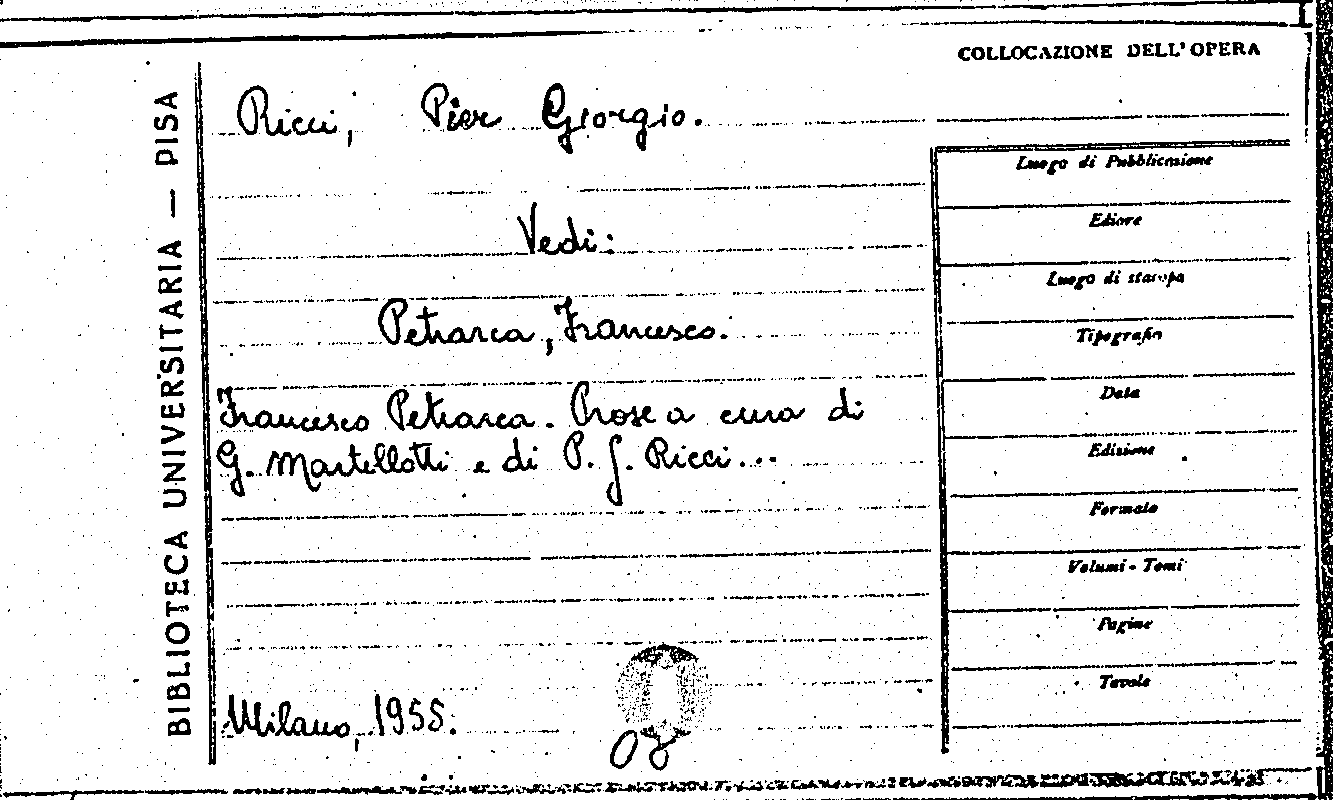 COLLOCAZIONE DELL'OPERA
BIBLIOTECA UNIVERSITARIA — PISA
Ricci, Pier Giorgio.
Vedi:
Petrarca, Francesco.
Francesco Petrarca. Prose a cura di
G. Martellotti e di P. G. Ricci...
Milano, 1955.
08
Luogo di Pubblicazione
Editore
Luogo di stampa
Tipografia
Data
Edizione
Formato
Volumi - Tomi
Pagine
Tavole